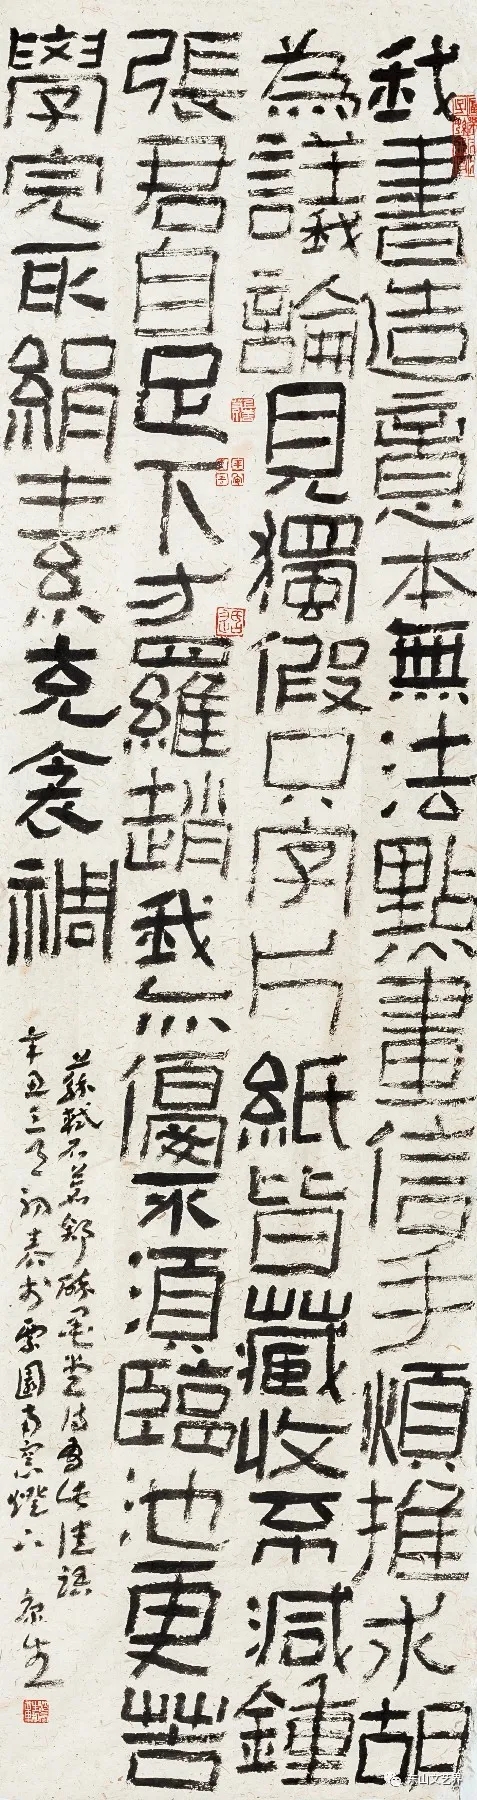 我書造意本無法點畫信手煩推求胡
為議論見獨假只字片紙皆藏收不減鍾
張君自足下方羅趙我亦優不須臨池更苦
學完取絹素充衾裯
蘇軾石蒼舒醉墨堂詩佳語
辛丑三月初春於園南窗燈下
东山文艺界